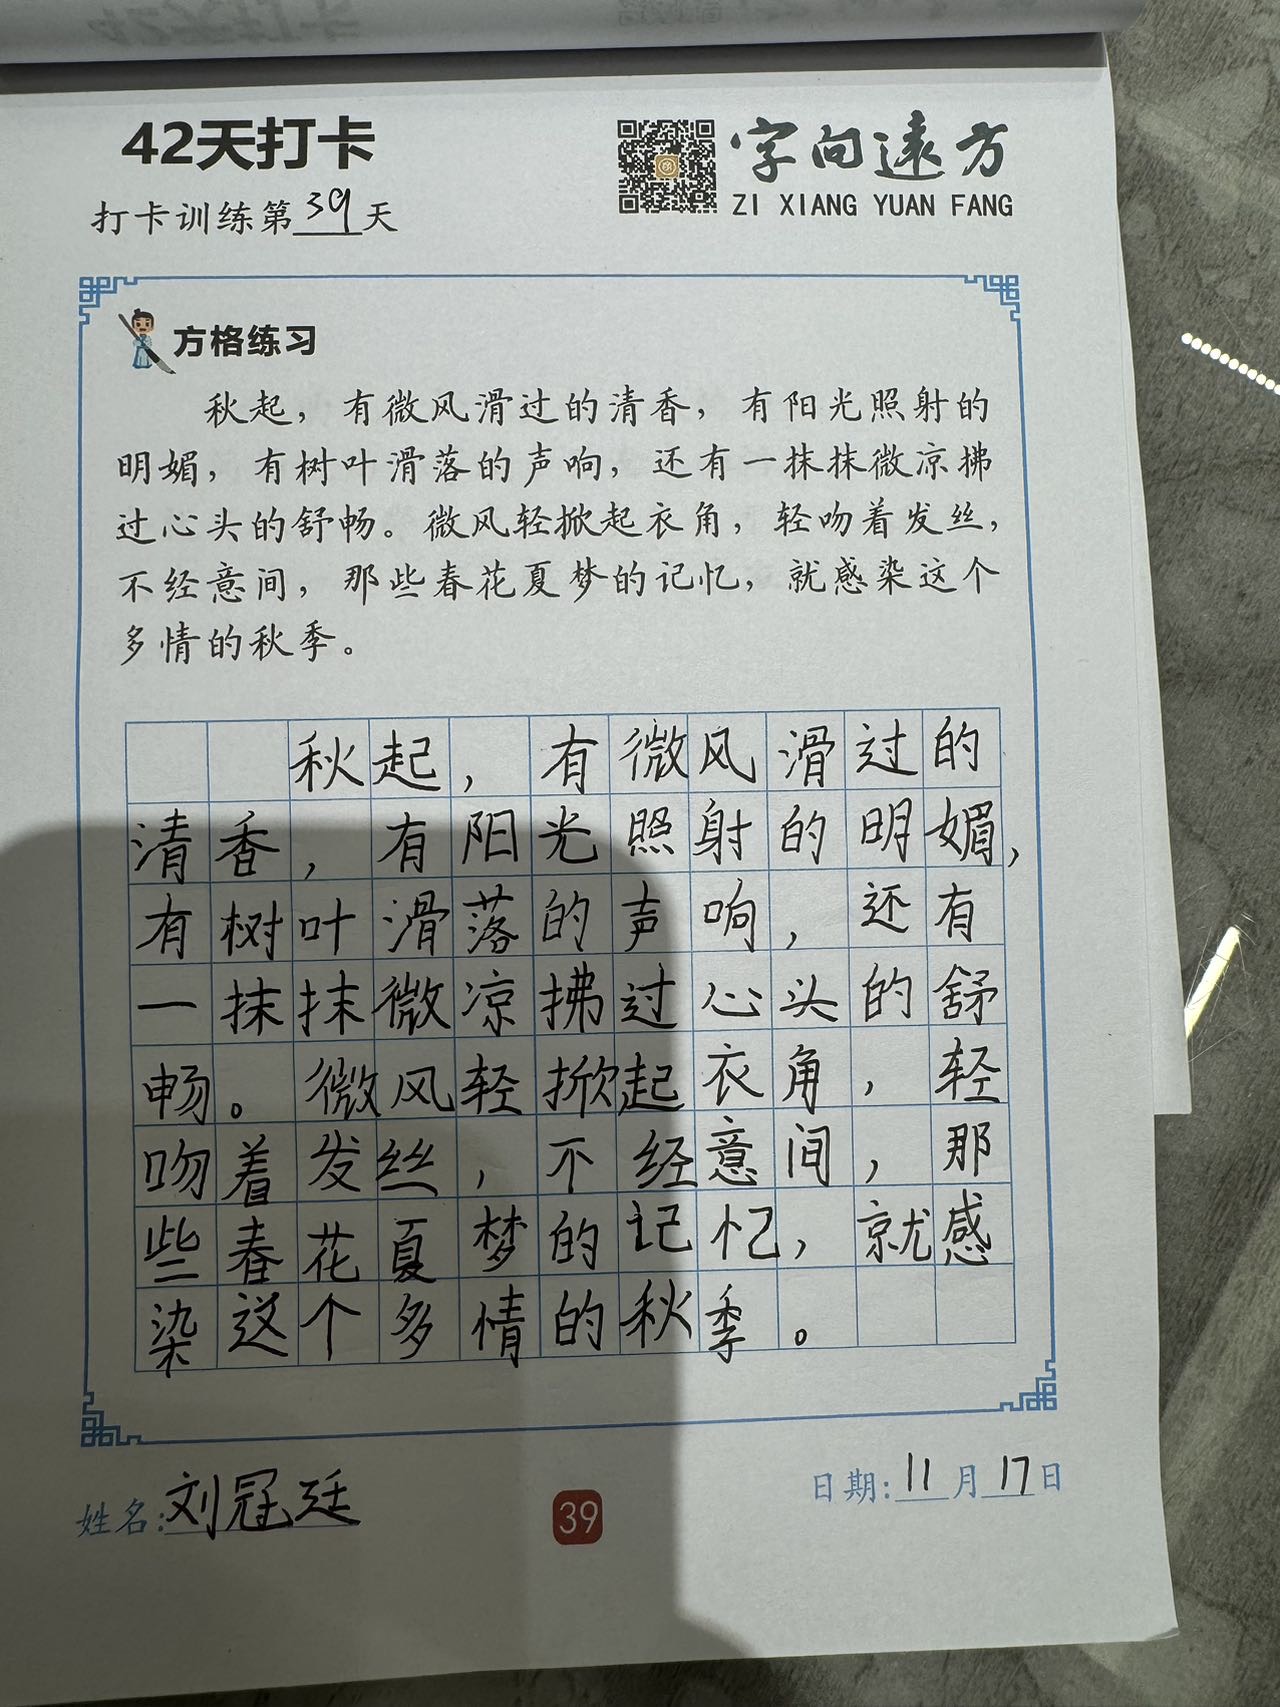 42天打卡
打卡训练第39天
字向远方
ZI XIANG YUAN FANG
方格练习
秋起，有微风滑过的清香，有阳光照射的
明媚，有树叶滑落的声响，还有一抹抹微凉拂
过心头的舒畅。微风轻掀起衣角，轻吻着发丝，
不经意间，那些春花夏梦的记忆，就感染这个
多情的秋季。
秋起，有微风滑过的
清香，有阳光照射的明媚，
有树叶滑落的声响，还有
一抹抹微凉拂过心头的舒
畅。微风轻掀起衣角，轻
吻着发丝，不经意间，那
些春花夏梦的记忆，就感
染这个多情的秋季。
姓名:刘冠廷
39
日期:11月17日